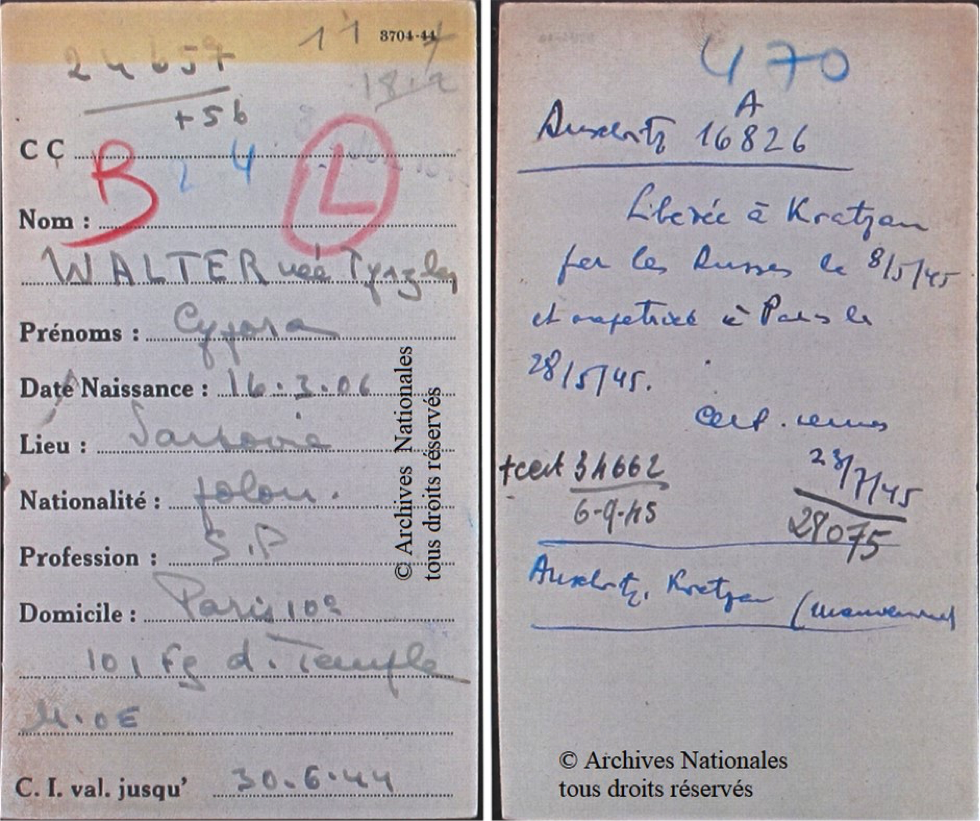 11 3704-44
24657
18.2
+56
CC
B 24 L
Nom :
WALTER née
Prénoms : Cypora
Date Naissance : 16.3.06
Lieu : Varsovie
Nationalité : polon.
Profession : S.P
Domicile : Paris 10e
101 Fg d. Temple
C. I. val. jusqu' 30.6.44
© Archives Nationales
tous droits réservés
470
A
Auschwitz 16826
Libérée à Kratzau
par les Russes le 8/5/45
et rapatriée à Paris le
28/5/45.
+cert 34662
6-9-45
23/7/45
28075
Auschwitz, Kratzau
© Archives Nationales
tous droits réservés